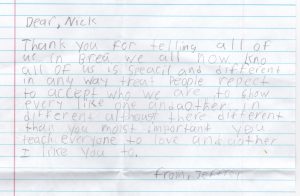 Dear, Nick
Thank you for telling all of
us in Brea we all now kno
all of us is speacil and different
in any way treat People repect
to accept who we are to show
every like one and another in
different althoust there different
than you moist important you
teach everyone to love and another
I like you to.
from, Jeffrey